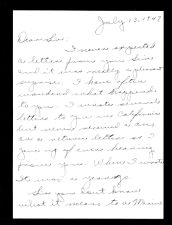 July 13, 1947
Dear Lu:
I never expected
a letter from you. Sure
and it was really a pleasant
surprise. I have often
wondered what happened
to you. I wrote several
letters to you in California
but never received
a return letter so I
gave up of ever hearing
from you. When I wrote
it was
You don't know
what it means to